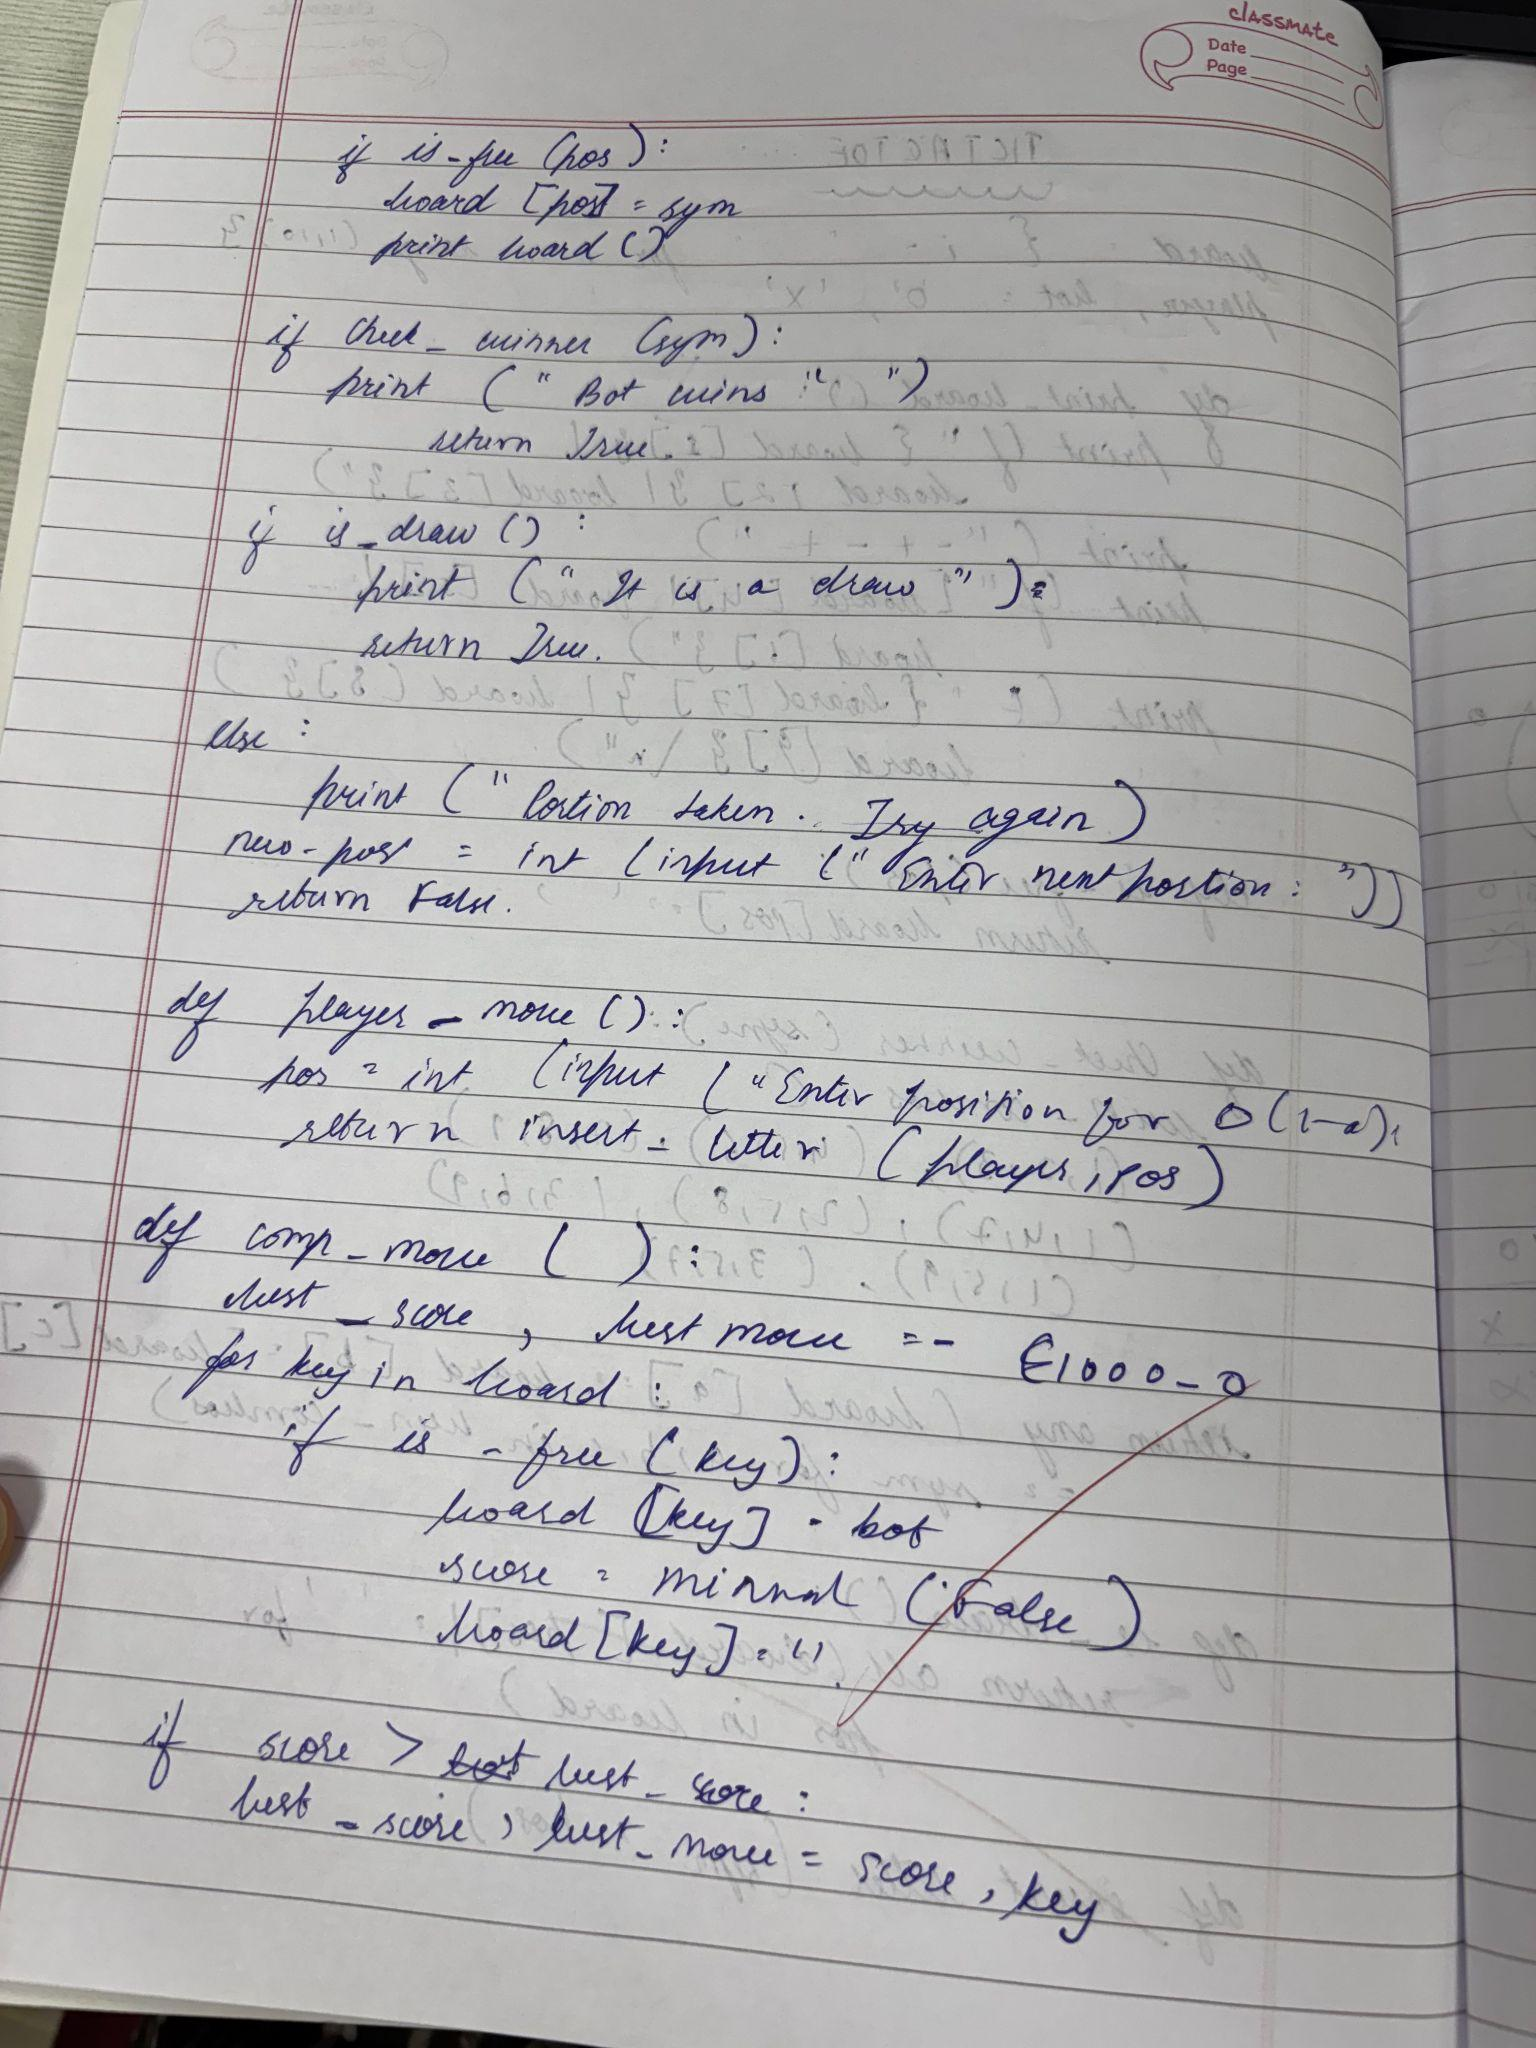 classmate
Date
Page
if is_free (pos):
board [pos] = sym
print board ()
if check_winner (sym):
print (" Bot wins " ")
return True.
if is_draw () :
print (" It is a draw ") :
return True.
else :
print (" Postion taken. Try again )
new-pos = int (input (" Enter next postion : "))
return False.
def player_move () :
pos = int (input ("Enter position for O (1-
return insert_letter (player, pos)
def comp_move ( ) :
best_score , best move = -
for key in board :
if is_free (key) :
board [key] = bot
score = (False)
board [key] = ' '
if score > best_score :
best_score , best_move = score , key